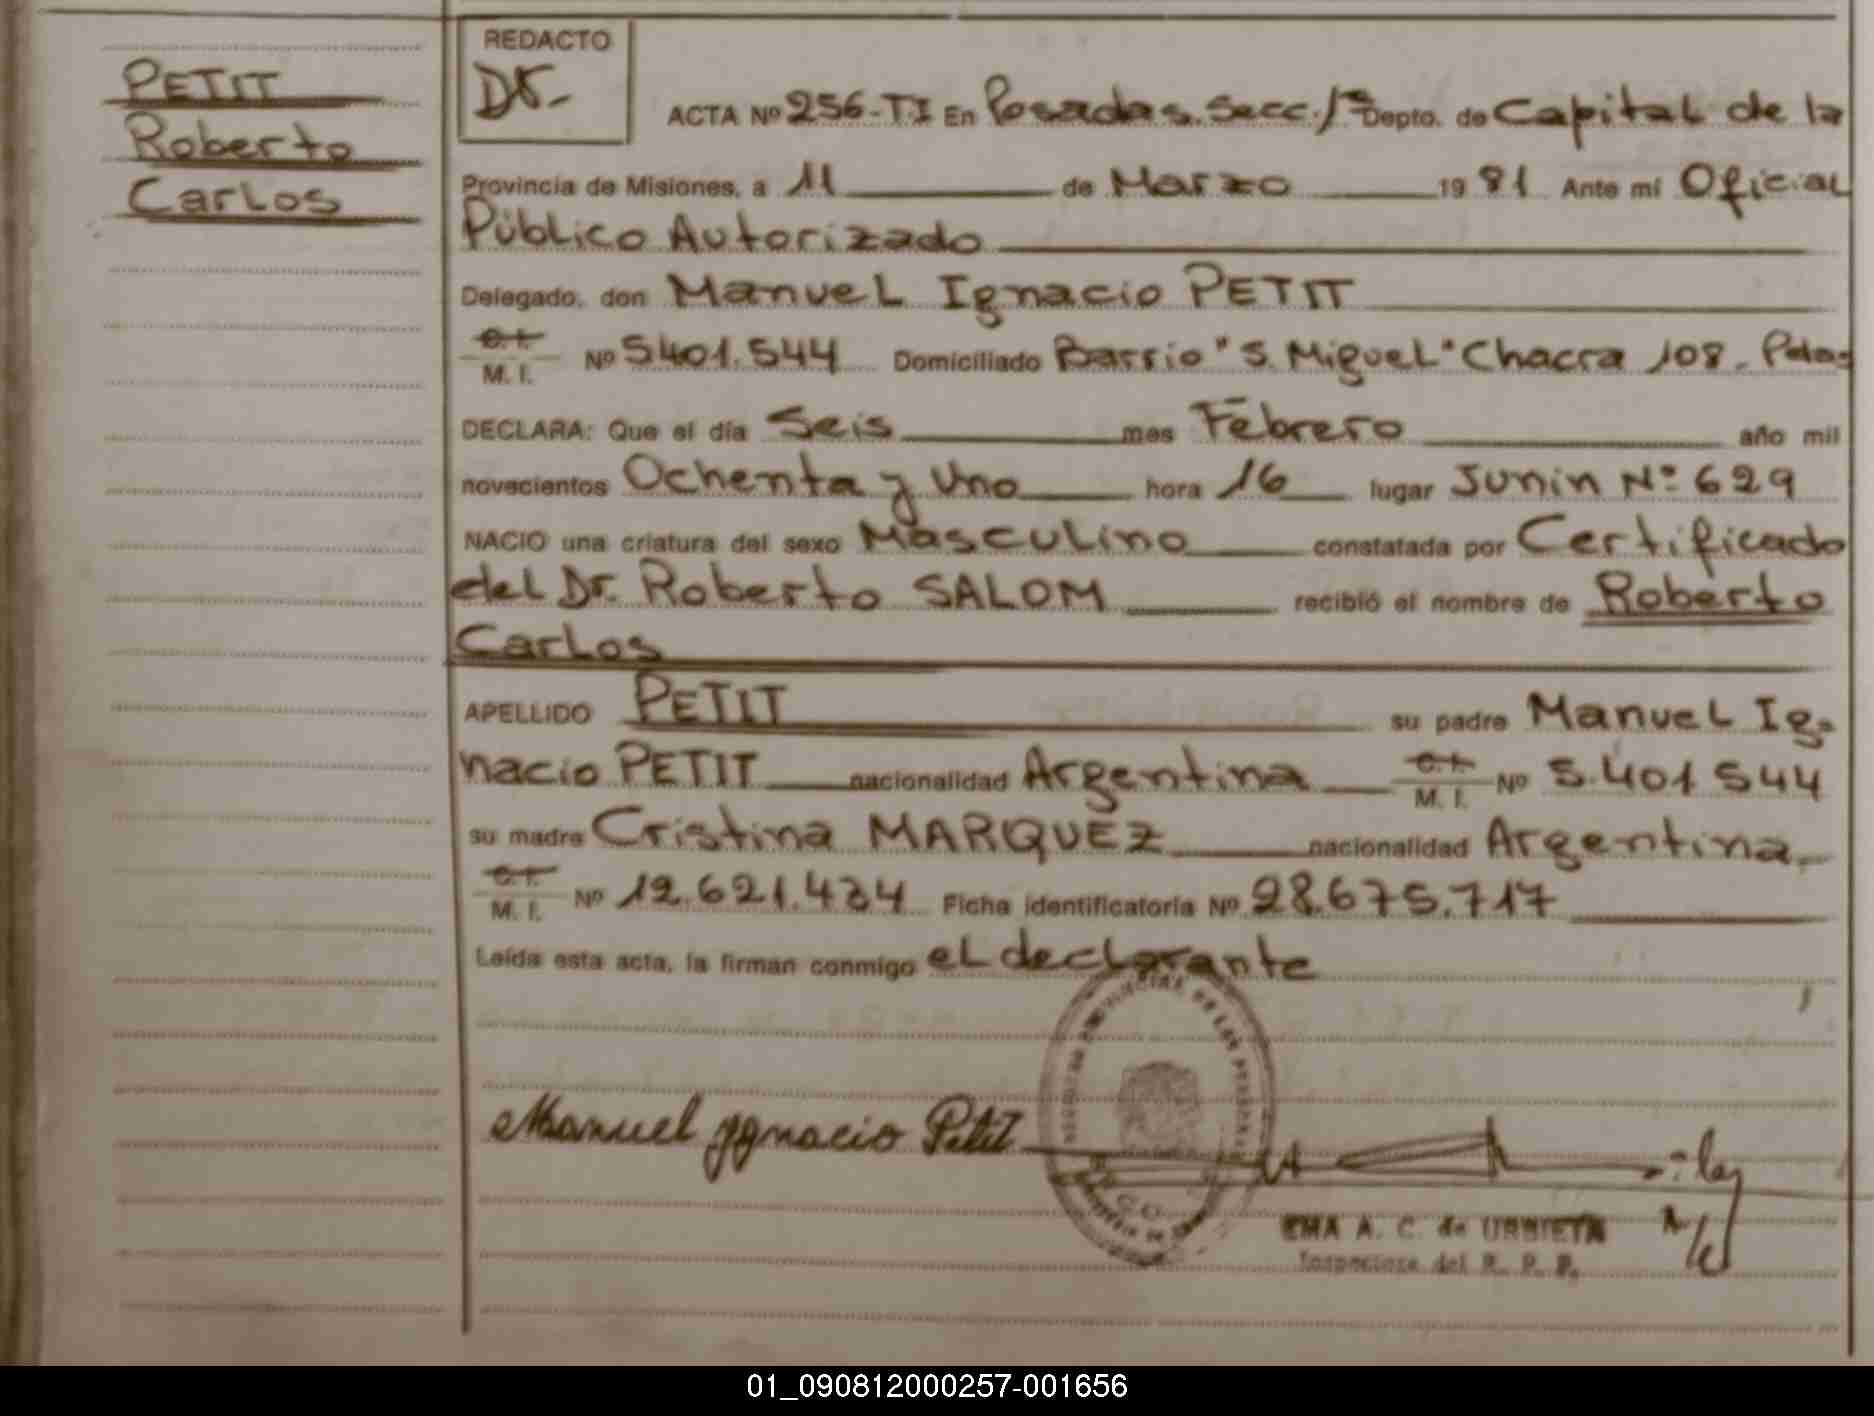 PETIT
Roberto
Carlos
REDACTO
ACTA Nº 256-TI En Posadas. Secc. 1ª Depto. de Capital de la
Provincia de Misiones, a 11 de Marzo 19 81 Ante mí Oficial
Público Autorizado
Delegado, don Manuel Ignacio PETIT
C. I.
M. I. Nº 5401.544 Domiciliado Barrio "S. Miguel" Chacra 108. Pdas
DECLARA: Que el día Seis mes Febrero año mil
novecientos Ochenta y Uno hora 16 lugar Junin Nº 629
NACIO una criatura del sexo Masculino constatada por Certificado
del Dr. Roberto SALOM recibió el nombre de Roberto
Carlos
APELLIDO PETIT su padre Manuel Ig-
nacio PETIT nacionalidad Argentina C. I.
M. I. Nº 5.401 544
su madre Cristina MARQUEZ nacionalidad Argentina.
C. I.
M. I. Nº 12.621.434 Ficha identificatoria Nº 28.675.717
Leída esta acta, la firman conmigo el declarante
Manuel Ygnacio Petit
EMA A. C. de URBIETA
Inspectora del R. P. P.
01_090812000257-001656